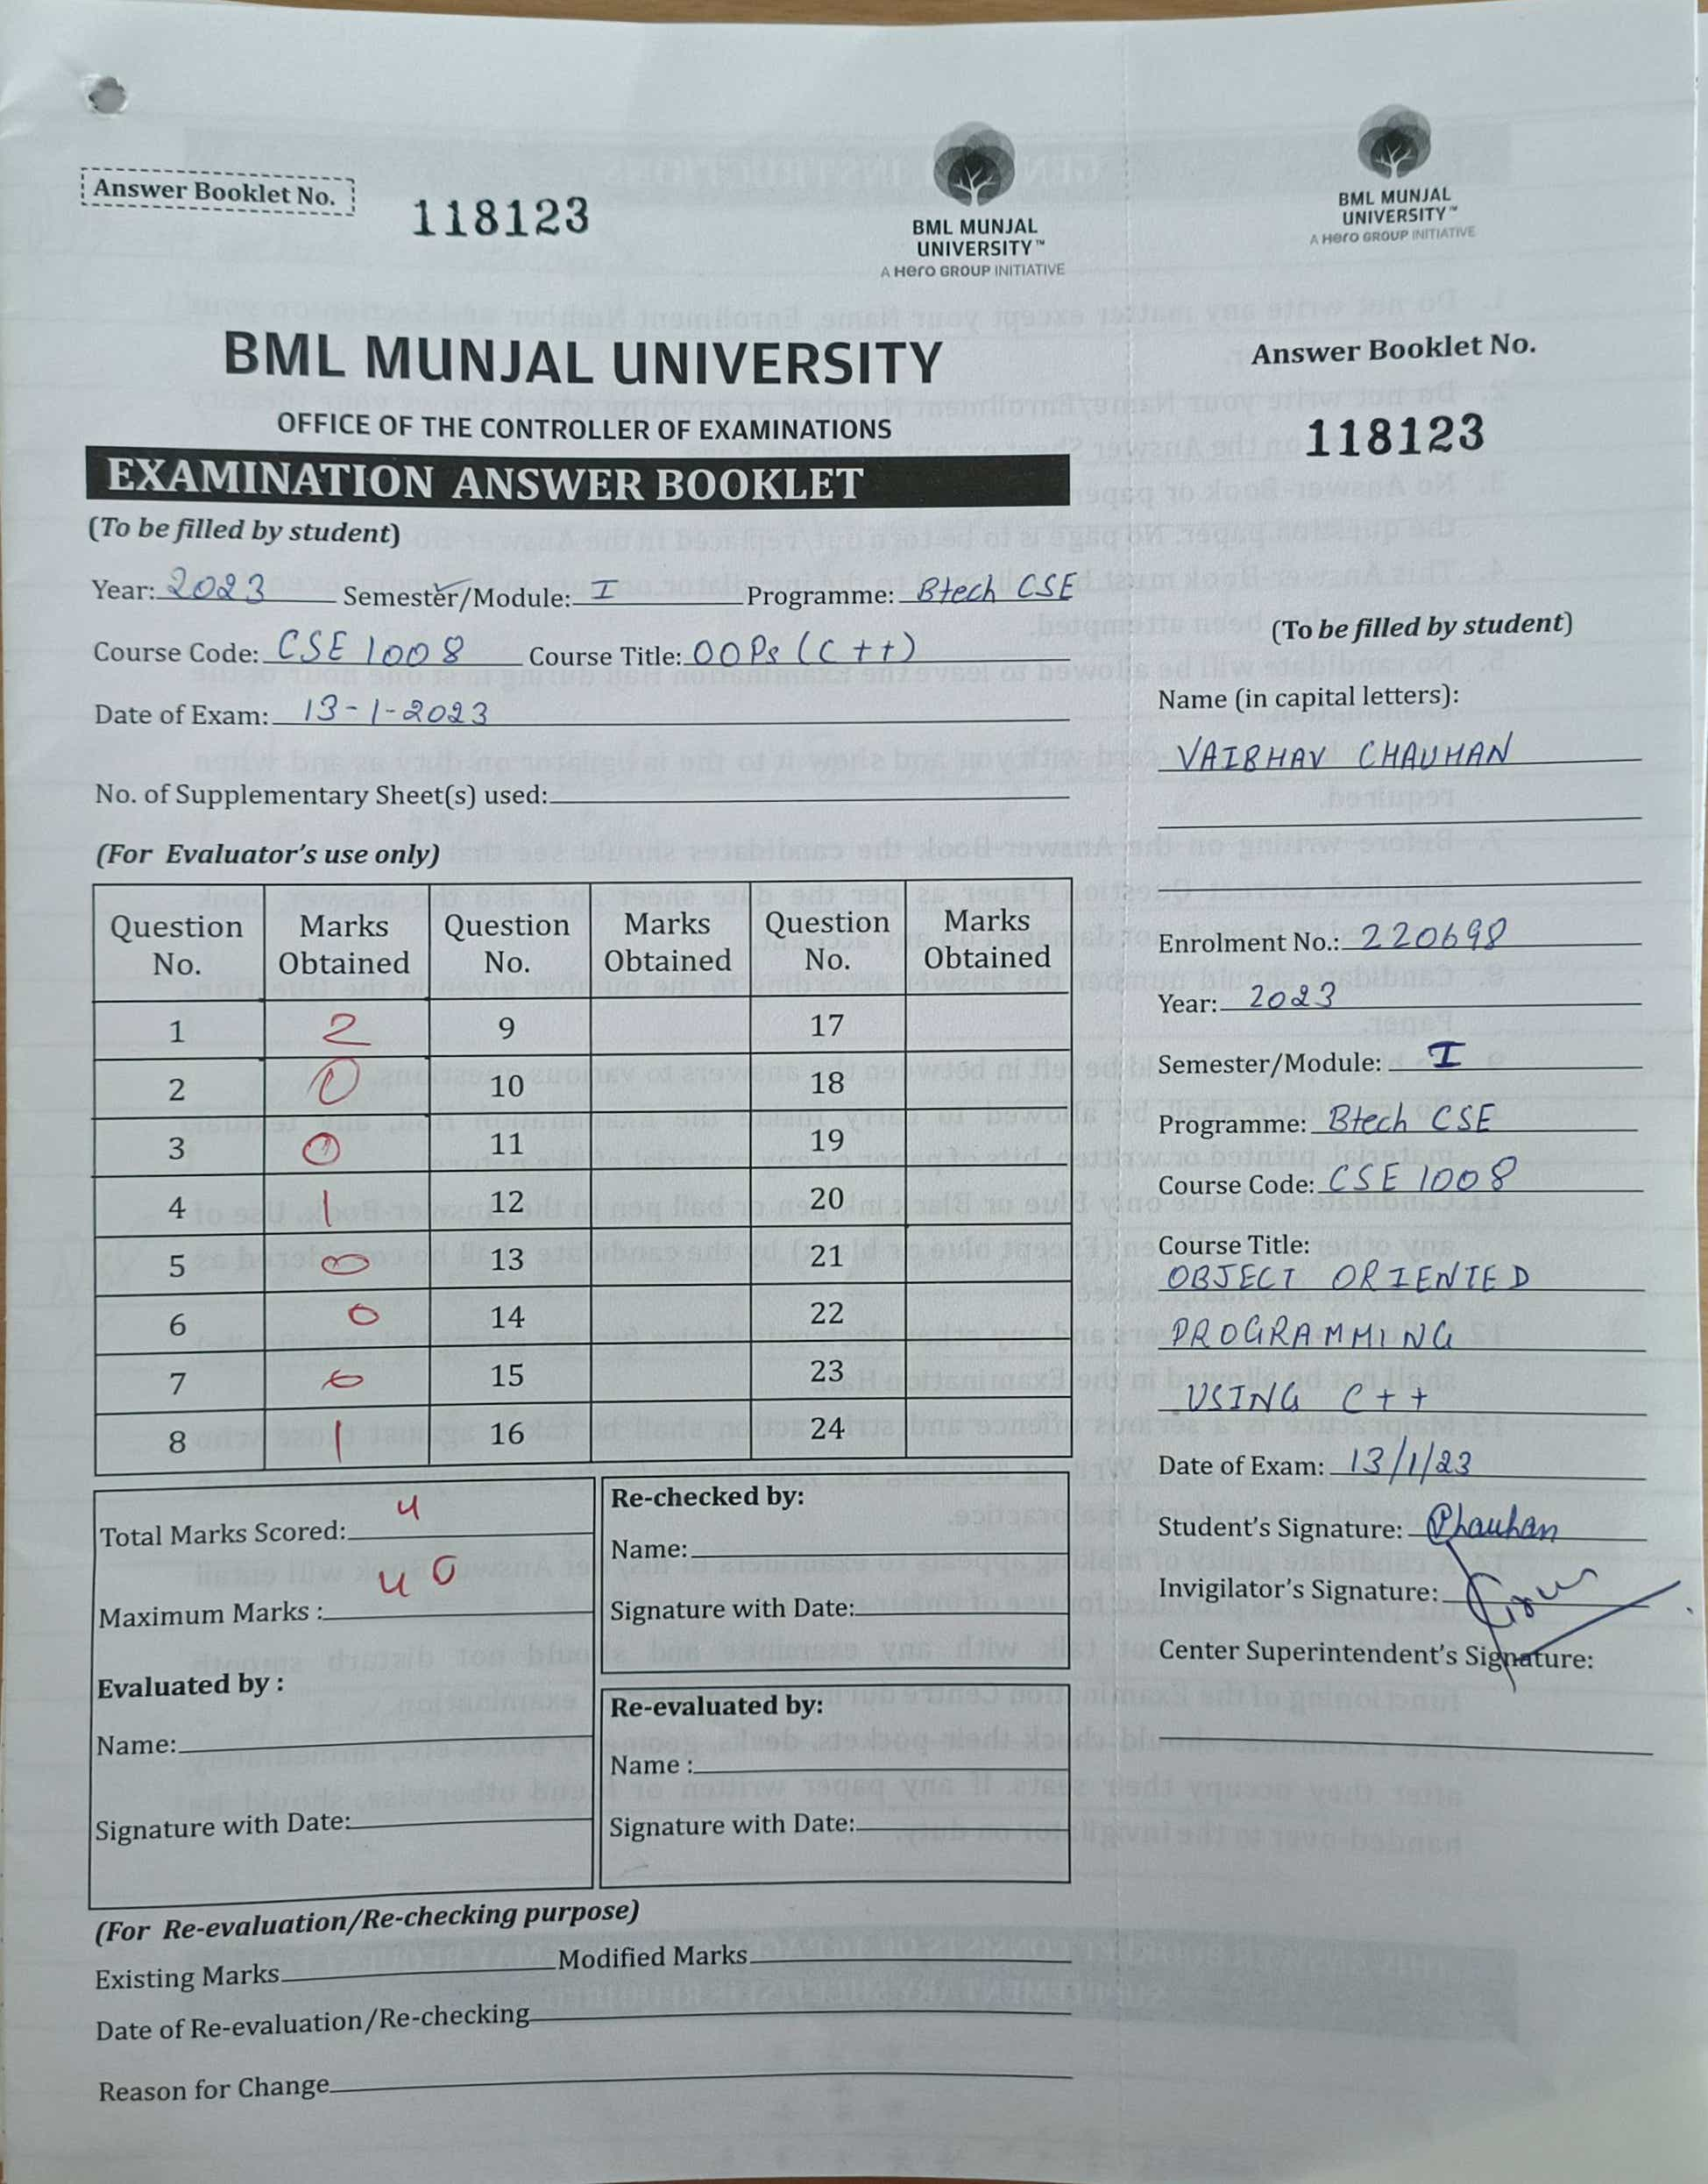 Answer Booklet No.
118123
BML MUNJAL
UNIVERSITY™
A Hero GROUP INITIATIVE
BML MUNJAL UNIVERSITY
OFFICE OF THE CONTROLLER OF EXAMINATIONS
EXAMINATION ANSWER BOOKLET
(To be filled by student)
Year: 2023 Semester/Module: I Programme: Btech CSE
Course Code: CSE 1008 Course Title: OOPs (C++)
Date of Exam: 13-1-2023
No. of Supplementary Sheet(s) used:
(For Evaluator's use only)
Question No. Marks Obtained Question No. Marks Obtained Question No. Marks Obtained
1 2 9 17
2 10 18
3 11 19
4 1 12 20
5 0 13 21
6 0 14 22
7 0 15 23
8 1 16 24
Total Marks Scored: 4
Maximum Marks : 40
Evaluated by :
Name:
Signature with Date:
Re-checked by:
Name:
Signature with Date:
Re-evaluated by:
Name :
Signature with Date:
(For Re-evaluation/Re-checking purpose)
Existing Marks Modified Marks
Date of Re-evaluation/Re-checking
Reason for Change
BML MUNJAL
UNIVERSITY™
A Hero GROUP INITIATIVE
Answer Booklet No.
118123
(To be filled by student)
Name (in capital letters):
VAIBHAV CHAUHAN
Enrolment No.: 220698
Year: 2023
Semester/Module: I
Programme: Btech CSE
Course Code: CSE 1008
Course Title:
OBJECT ORIENTED
PROGRAMMING
USING C++
Date of Exam: 13/1/23
Student's Signature: Chauhan
Invigilator's Signature:
Center Superintendent's Signature: